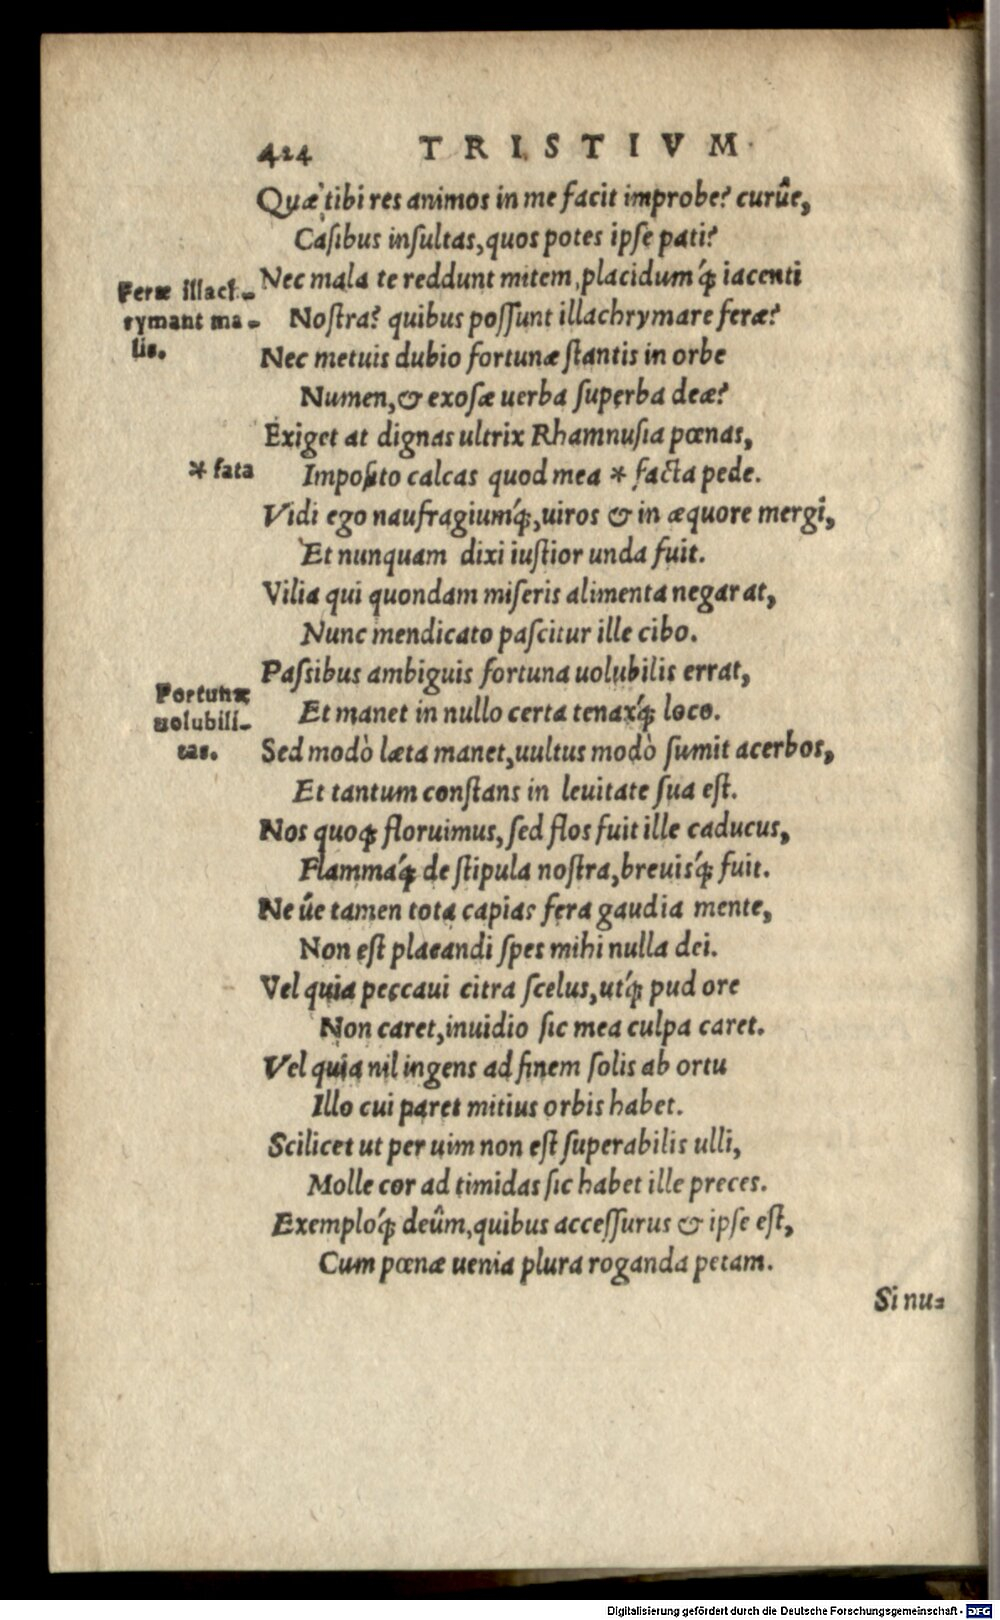 424 TRISTIVM
Quæ tibi res animos in me facit improbe? curûe,
Casibus insultas, quos potes ipse pati?
Nec mala te reddunt mitem, placidumq́ꝫ iacenti
Feræ illach-
Nostra? quibus possunt illachrymare feræ?
rymant ma-
lis.
Nec metuis dubio fortunæ stantis in orbe
Numen, & exosæ uerba superba deæ?
Exiget at dignas ultrix Rhamnusia pœnas,
* fata
Imposito calcas quod mea * facta pede.
Vidi ego naufragiumq́ꝫ, uiros & in æquore mergi,
Et nunquam dixi iustior unda fuit.
Vilia qui quondam miseris alimenta negarat,
Nunc mendicato pascitur ille cibo.
Passibus ambiguis fortuna uolubilis errat,
Fortunæ
uolubili-
tas.
Et manet in nullo certa tenaxq́ꝫ loco.
Sed modò læta manet, uultus modò sumit acerbos,
Et tantum constans in leuitate sua est.
Nos quoqꝫ floruimus, sed flos fuit ille caducus,
Flammaq́ꝫ de stipula nostra, breuisq́ꝫ fuit.
Ne ûe tamen tota capias fera gaudia mente,
Non est placandi spes mihi nulla dei.
Vel quia peccaui citra scelus, utq́ꝫ pudore
Non caret, inuidio sic mea culpa caret.
Vel quia nil ingens ad finem solis ab ortu
Illo cui paret mitius orbis habet.
Scilicet ut per uim non est superabilis ulli,
Molle cor ad timidas sic habet ille preces.
Exemploq́ꝫ deûm, quibus accessurus & ipse est,
Cum pœnæ uenia plura roganda petam.
Si nu-
Digitalisierung gefördert durch die Deutsche Forschungsgemeinschaft - DFG